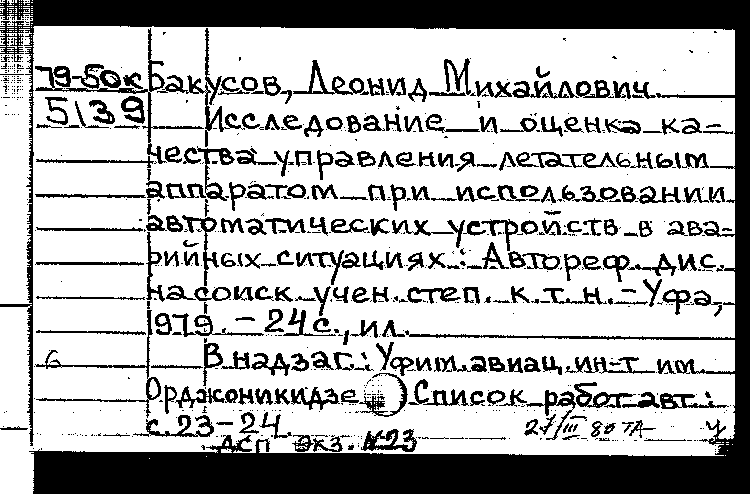 79-50к Бакусов, Леонид Михайлович.
5139 Исследование и оценка ка-
чества управления летательным
аппаратом при использовании
автоматических устройств в ава-
рийных ситуациях: Автореф. дис.
на соиск. учен. степ. к. т. н. - Уфа,
1979. - 24 с., ил.
В надзаг.: Уфим. авиац. ин-т им.
Орджоникидзе Список работ авт.:
с. 23-24.
ДСП экз. №23 27/III 80